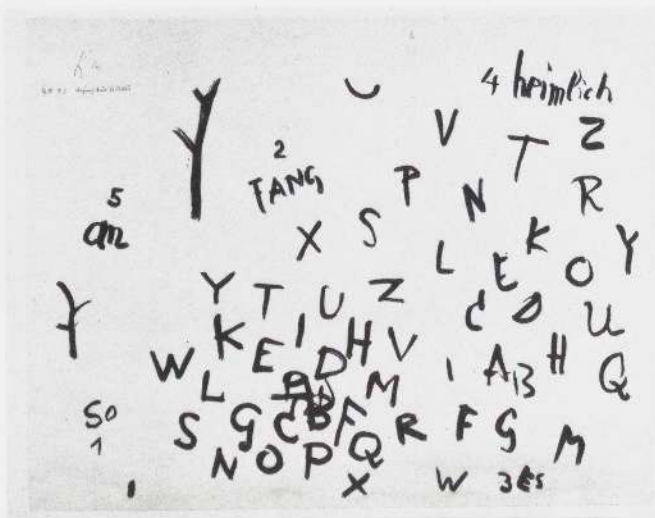 4 heimlich
V T Z
2
FANG
P N R
5
an
X S
L E K O Y
Y T U Z
C D U
K E I D H V
I A B H Q
W L A M
So
1
S G C B F R F G M
N O P Q
X W 3 Es